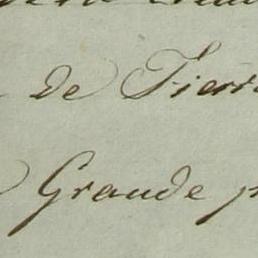 de Tierr
Grande p